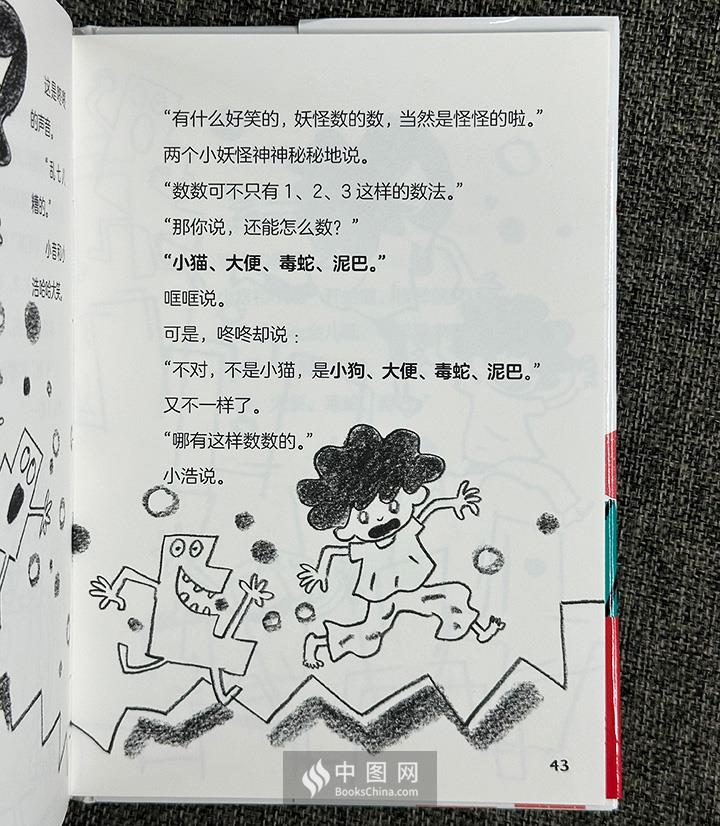 这是咚咚
的声音。
“乱七八
糟的。”
小音和小
浩哈哈大笑。
“有什么好笑的，妖怪数的数，当然是怪怪的啦。”
两个小妖怪神神秘秘地说。
“数数可不只有 1、2、3 这样的数法。”
“那你说，还能怎么数？”
“小猫、大便、毒蛇、泥巴。”
哐哐说。
可是，咚咚却说：
“不对，不是小猫，是小狗、大便、毒蛇、泥巴。”
又不一样了。
“哪有这样数数的。”
小浩说。
43
中图网
BooksChina.com